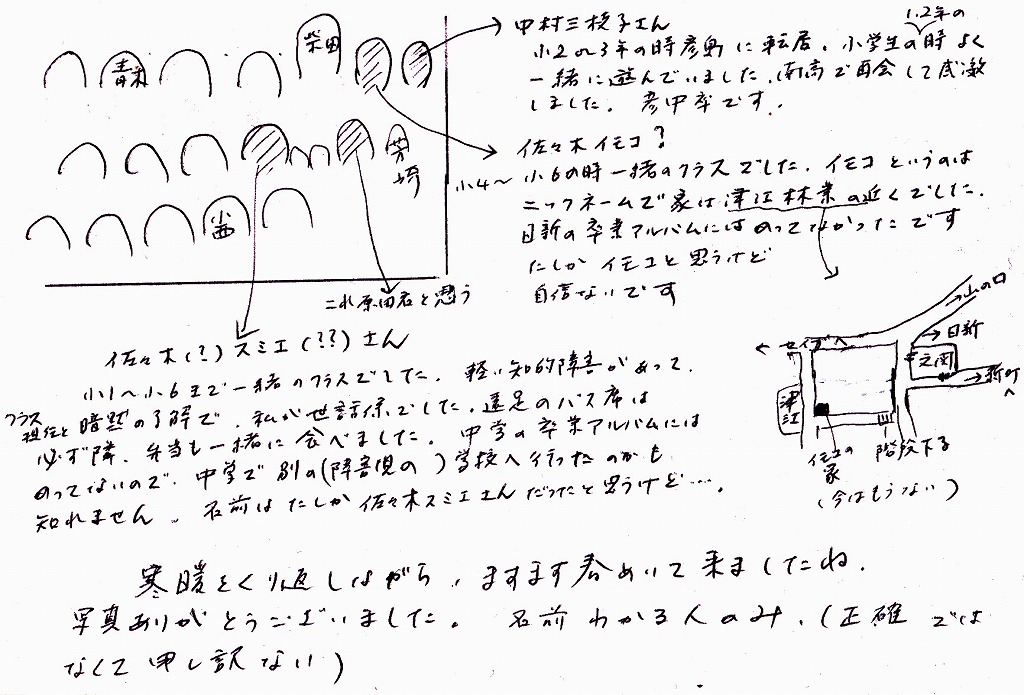 柴田
青木
茅崎
これ原田君と思う
中村三枝子さん
1.2年の
小2〜3年の時彦島に転居。小学生の時よく
一緒に遊んでいました。南高で再会して感激
しました。彦中卒です。
佐々木イモコ？
小4〜小6の時一緒のクラスでした。イモコというのは
ニックネームで家は津江林業の近くでした。
日新の卒業アルバムにはのってなかったです
たしかイモコと思うけど
自信ないです
佐々木(?)スミエ(??)さん
小1〜小6まで一緒のクラスでした。軽い知的障害があって、
クラス担任と暗黙の了解で、私が世話係でした。遠足のバス席は
必ず隣、弁当も一緒に食べました。中学の卒業アルバムには
のってないので、中学で別の(障害児の)学校へ行ったのかも
知れません。名前はたしか佐々木スミエさんだったと思うけど…。
→山の口
→日新
玄関
→新町へ
津江
イモコの家
(今はもうない)
階段下る
寒暖をくり返しながら、ますます春めいて来ましたね。
写真ありがとうございました。名前わかる人のみ、(正確では
なくて申し訳ない)